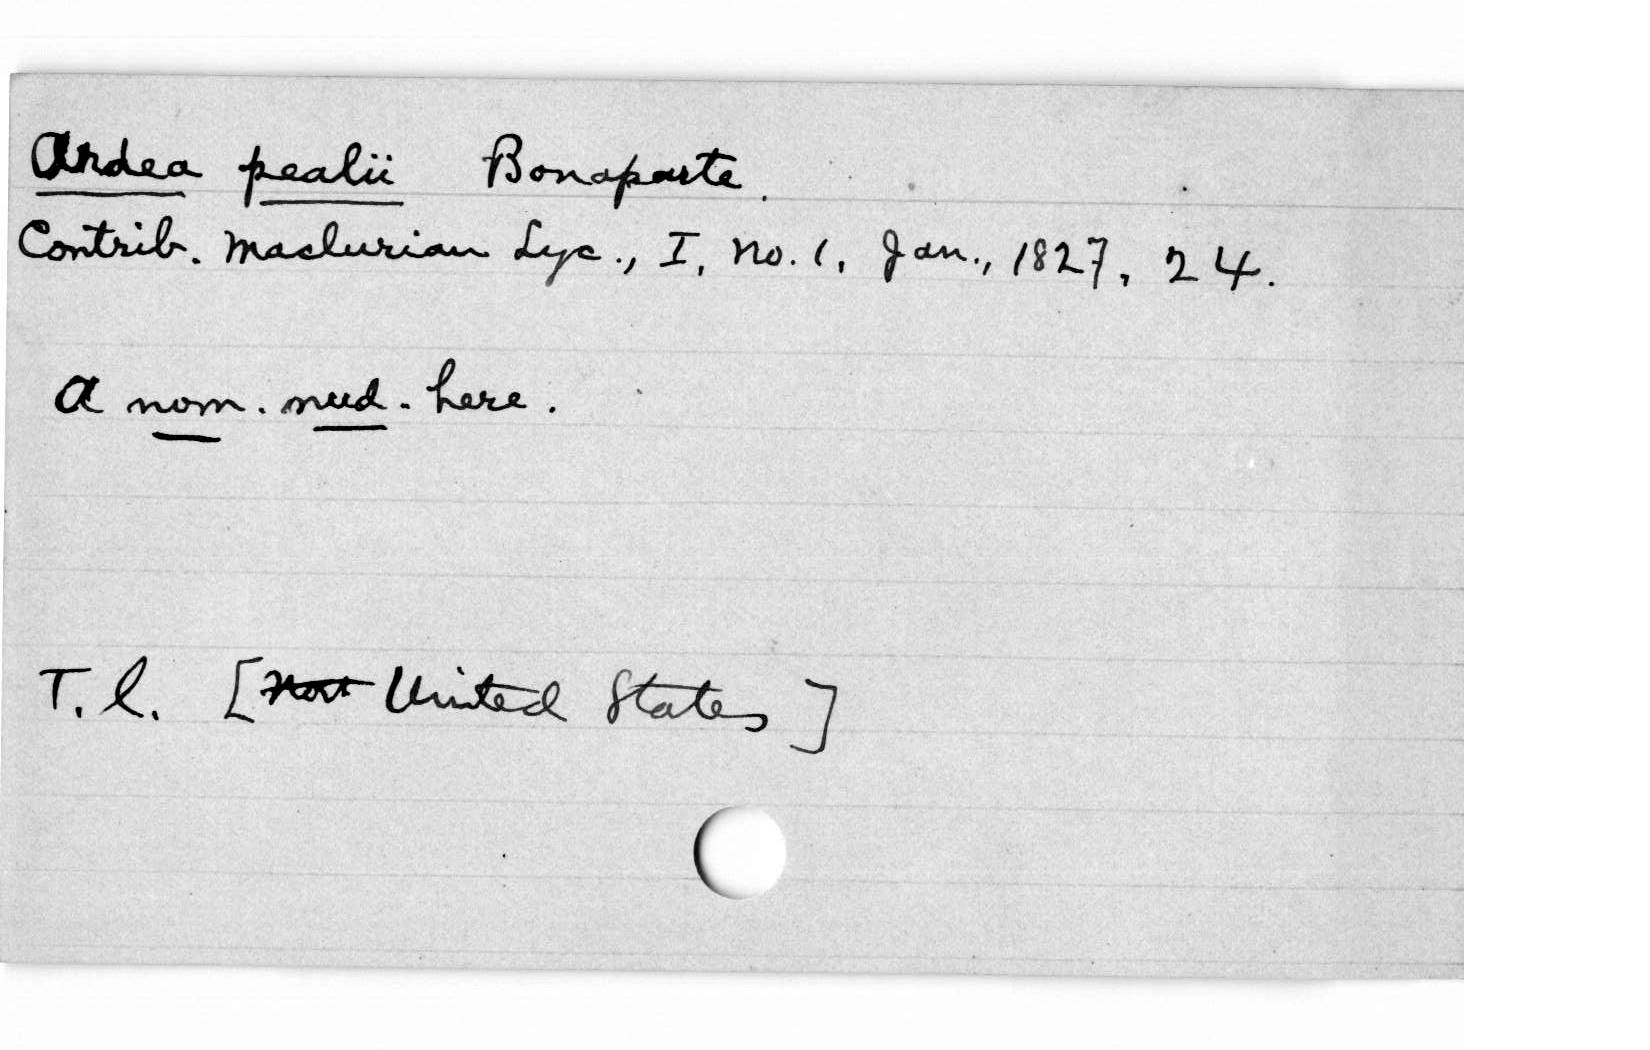 Ardea pealii Bonaparte.
Contrib. Maclurian Lyc., I, No. 1, Jan., 1827, 24.
A nom. nud. here.
T. l. [United States]